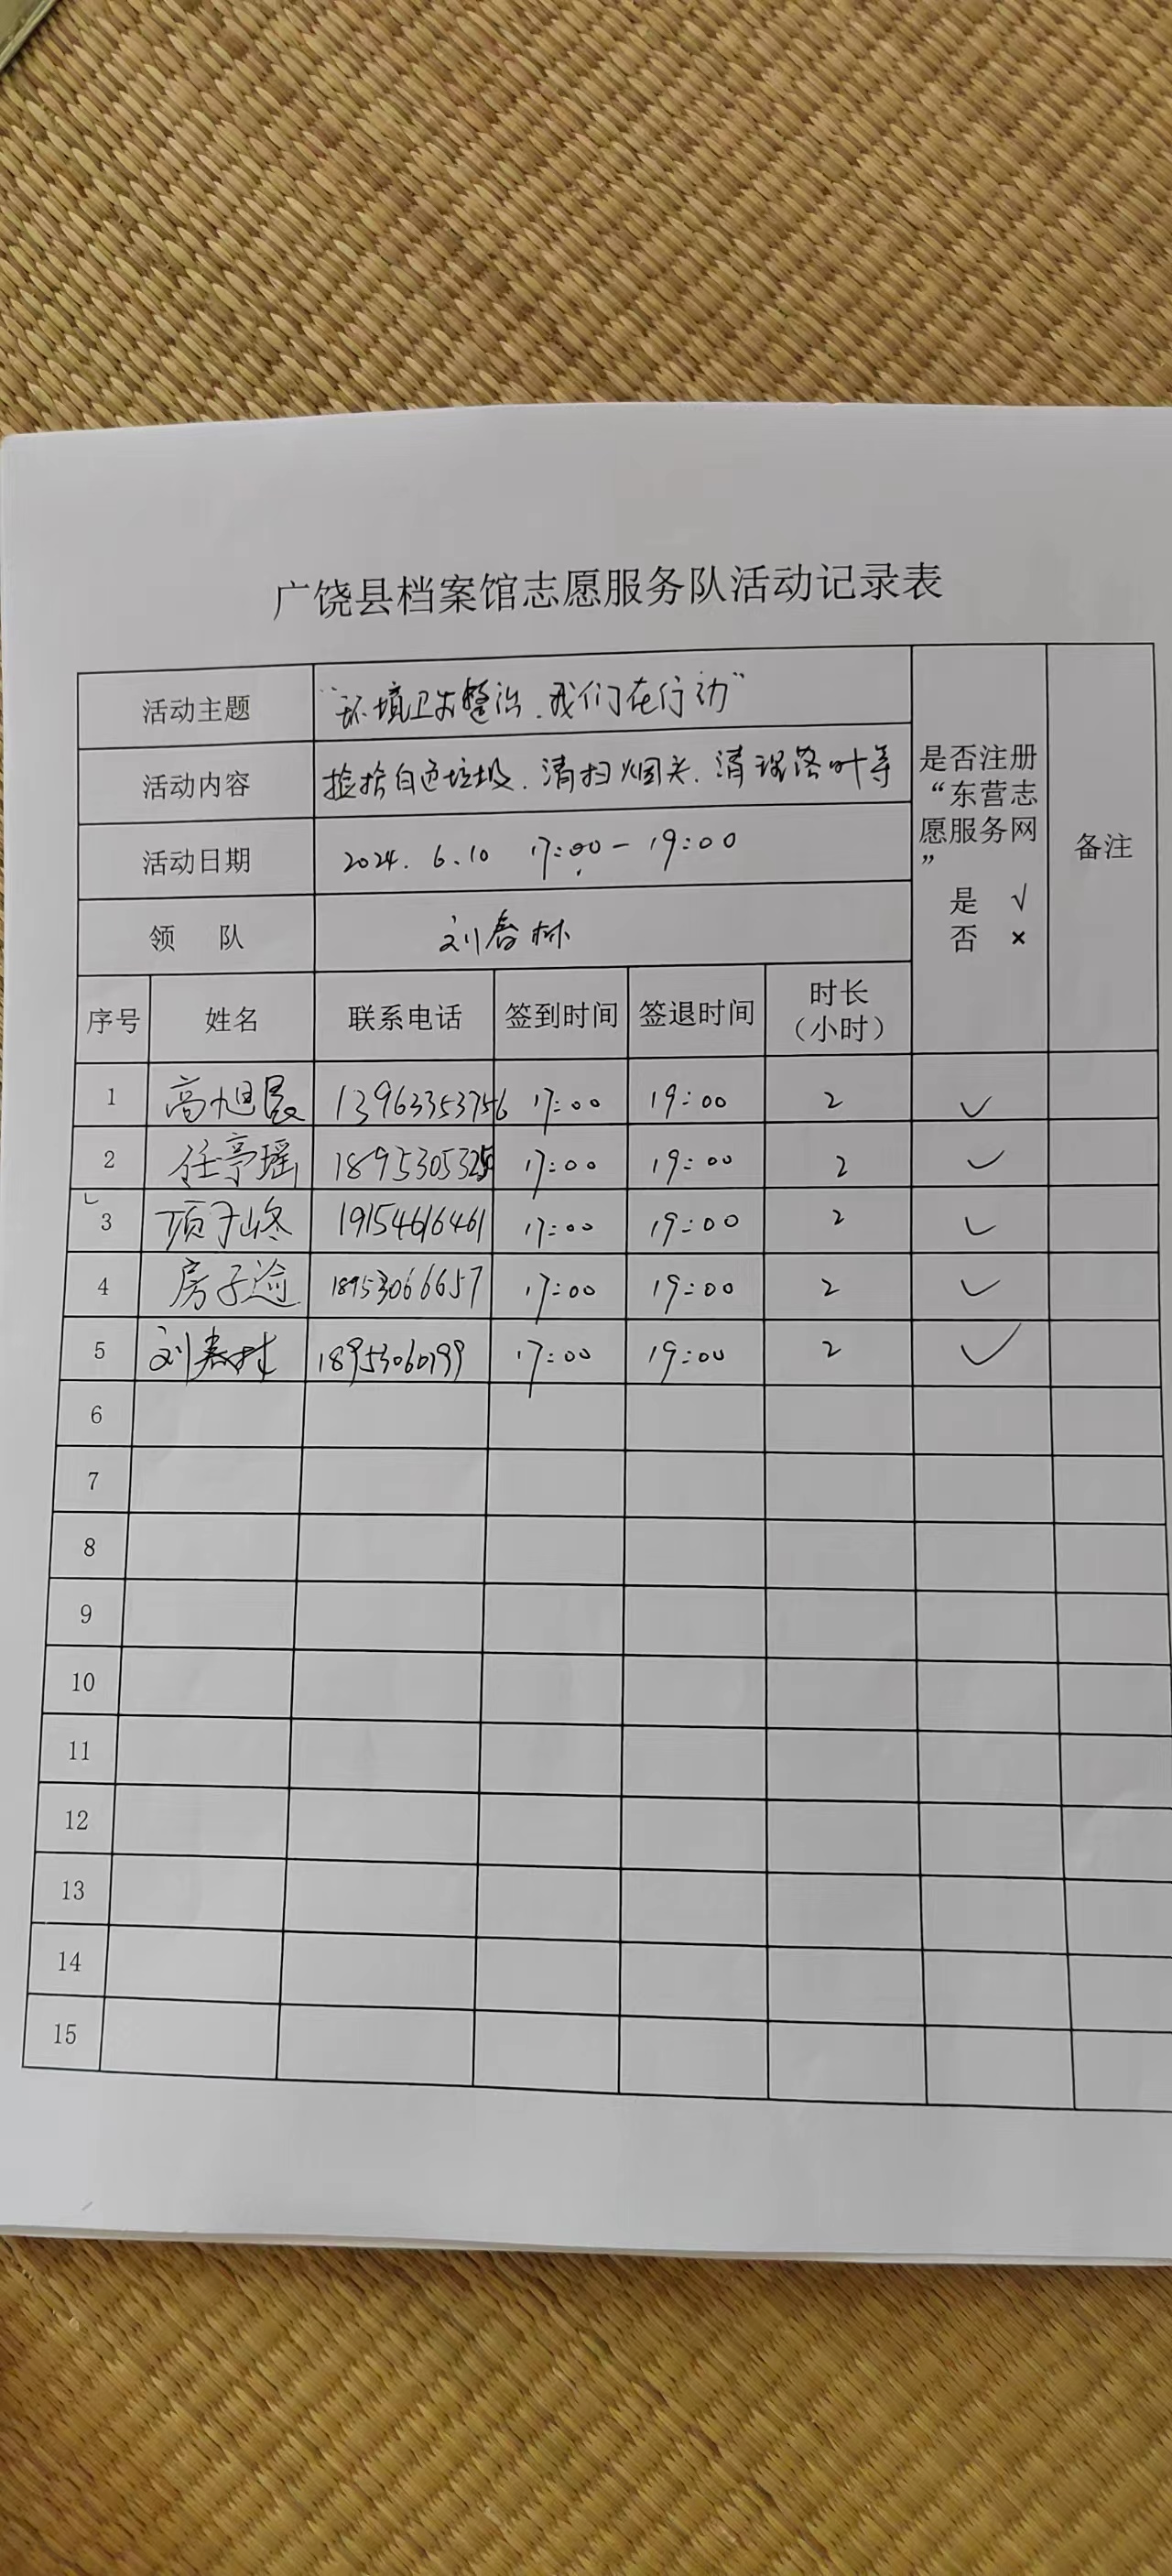 广饶县档案馆志愿服务队活动记录表
活动主题 “环境卫生整治、我们在行动”
活动内容 捡拾白色垃圾、清扫烟头、清理落叶等
活动日期 2024.6.10 17:00-19:00
领 队 刘春林
是否注册
“东营志
愿服务网
”
是 √
否 ×
备注
序号 姓名 联系电话 签到时间 签退时间 时长
（小时）
1 高旭晨 13963353756 17:00 19:00 2 ✓
2 任亭瑶 17:00 19:00 2 ✓
3 项子峰 19154616461 17:00 19:00 2 ✓
4 房子 18953066657 17:00 19:00 2 ✓
5 刘春林 18953060199 17:00 19:00 2 ✓
6
7
8
9
10
11
12
13
14
15